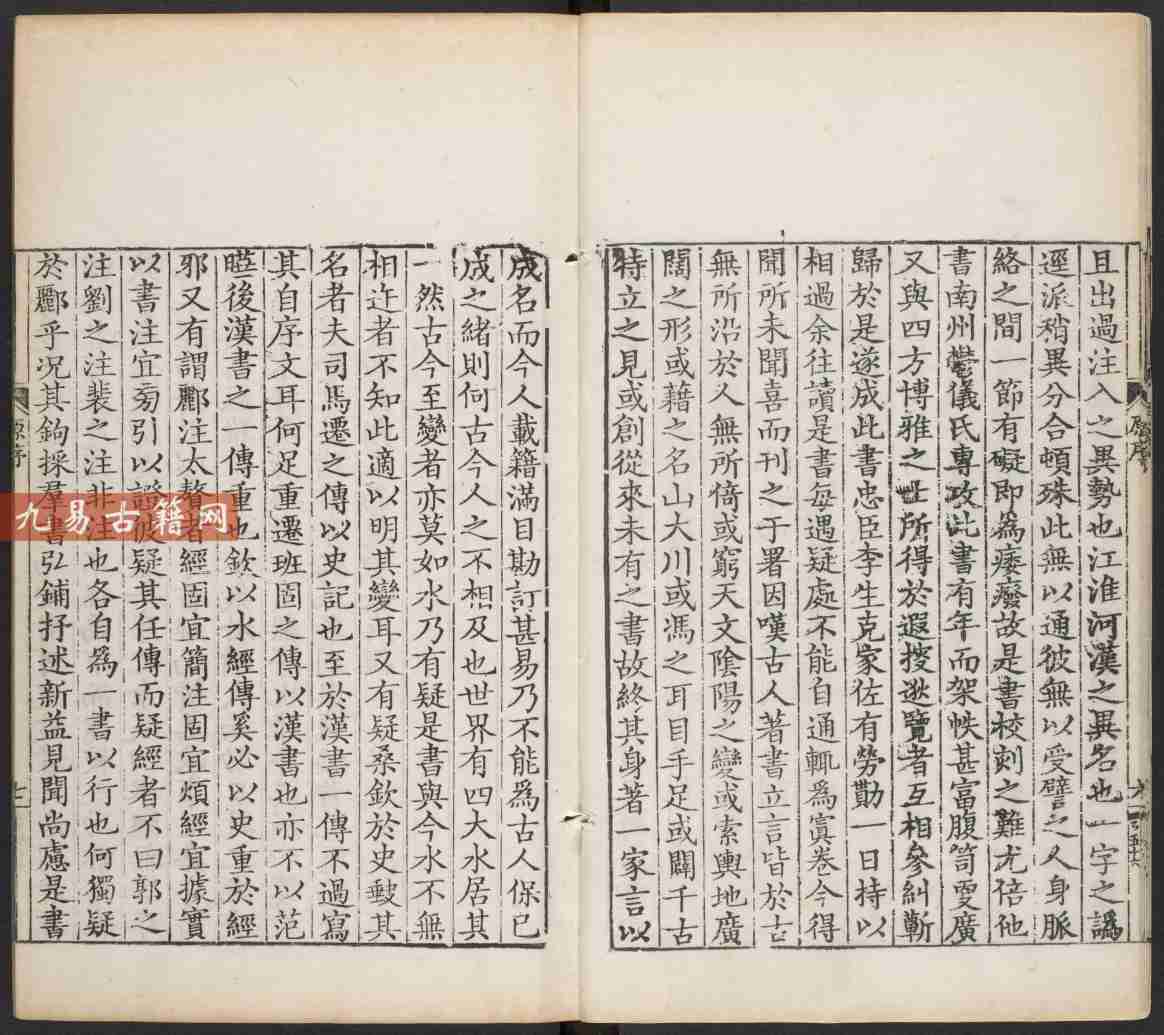 且出過注入之異勢也江淮河漢之異名也一字之譌
逕派稍異分合頓殊此無以通彼無以受譬之人身脈
絡之間一節有礙即為痿癈故是書校刻之難尤倍他
書南州鬱儀氏專攻此書有年而架帙甚富腹笥雯廣
又與四方博雅之士所得於遐搜逖覽者互相參糾斬
歸於是遂成此書忠臣李生克家佐有勞勩一日持以
相過余往讀是書每遇疑處不能自通輒為窴卷今得
聞所未聞喜而刊之于署因嘆古人著書立言皆於古
無所沿於人無所倚或窮天文陰陽之變或索輿地廣
闊之形或藉之名山大川或馮之耳目手足或闢千古
特立之見或創從來未有之書故終其身著一家言以
原序
成名而今人載籍滿目勘訂甚易乃不能為古人保已
成之緒則何古今人之不相及也世界有四大水居其
一然古今至變者亦莫如水乃有疑是書與今水不無
相迕者不知此適以明其變耳又有疑桑欽於史㪇其
名者夫司馬遷之傳以史記也至於漢書一傳不過寫
其自序文耳何足重遷班固之傳以漢書也亦不以范
曄後漢書之一傳重也欽以水經傳奚必以史重於經
邪又有謂酈注太聱者經固宜簡注固宜煩經宜據實
以書注宜匊引以證彼疑其任傳而疑經者不曰郭之
注劉之注裴之注非注也各自為一書以行也何獨疑
於酈乎况其鉤採羣書弘鋪抒述新益見聞尚慮是書
原序
七
九易古籍网